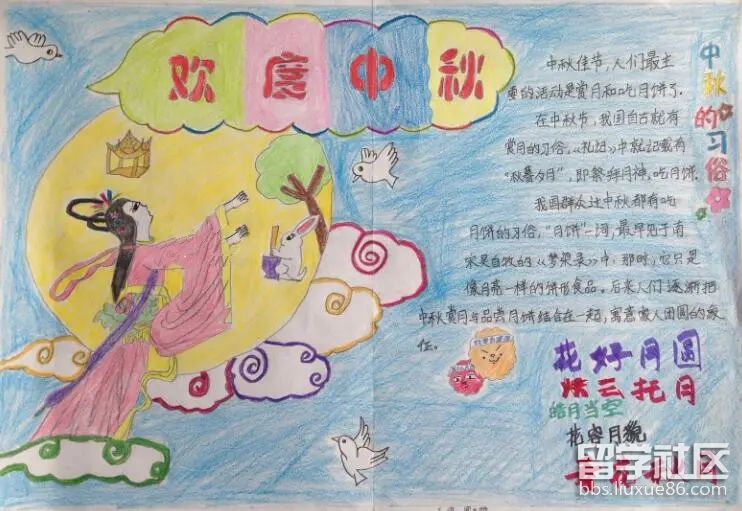 欢度中秋
中秋的习俗
中秋佳节,人们最主
要的活动是赏月和吃月饼了.
在中秋节,我国自古就有
赏月的习俗,《礼记》中就记载有
"秋暮夕月",即祭拜月神,吃月饼.
我国群众过中秋都有吃
月饼的习俗,"月饼"一词,最早见于南
宋吴自牧的《梦梁录》中,那时,它只是
像月亮一样的饼形食品。后来人们逐渐把
中秋赏月与品尝月饼结合在一起,寓意家人团圆的象
征。
花好月圆
烘云托月
皓月当空
花容月貌
留学社区
bbs.liuxue86.com